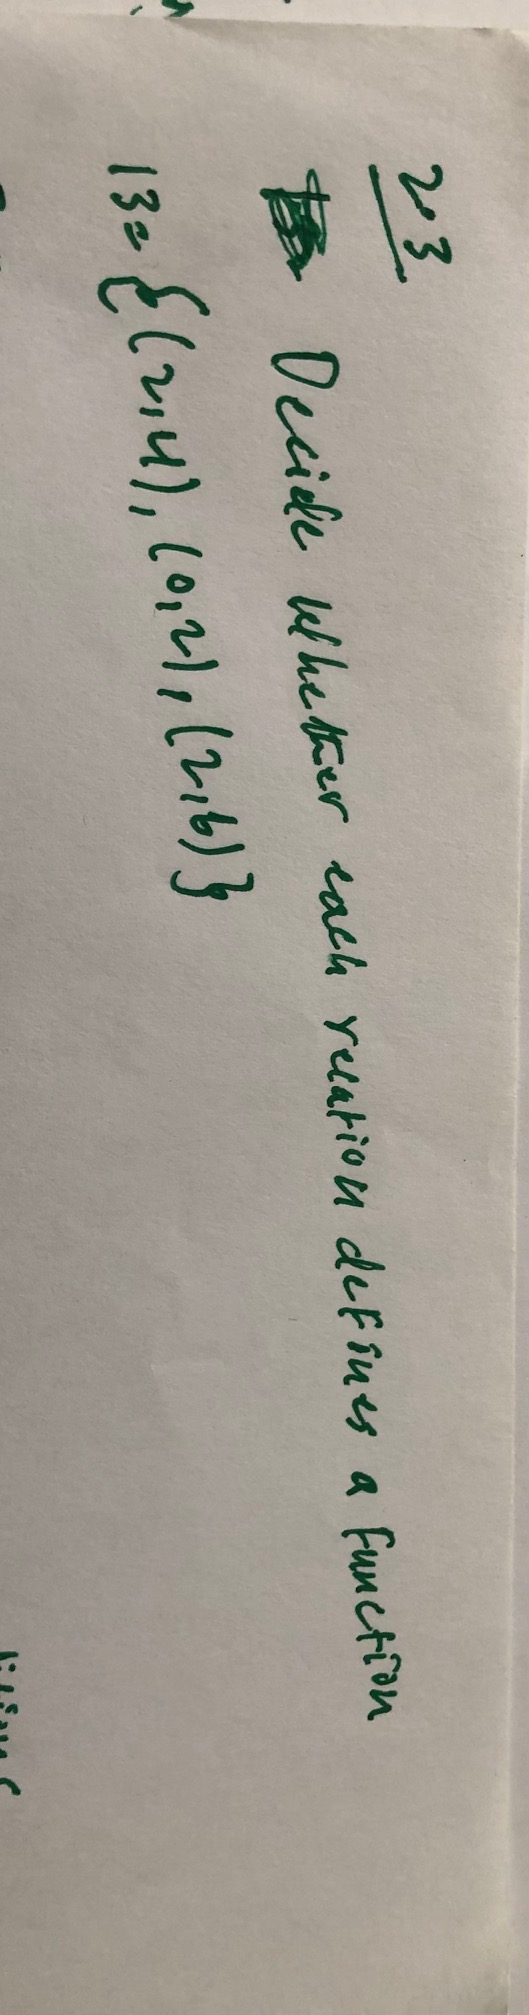 2.3
Decide whether each relation defines a function
13= {(2,4), (0,2), (2,6)}